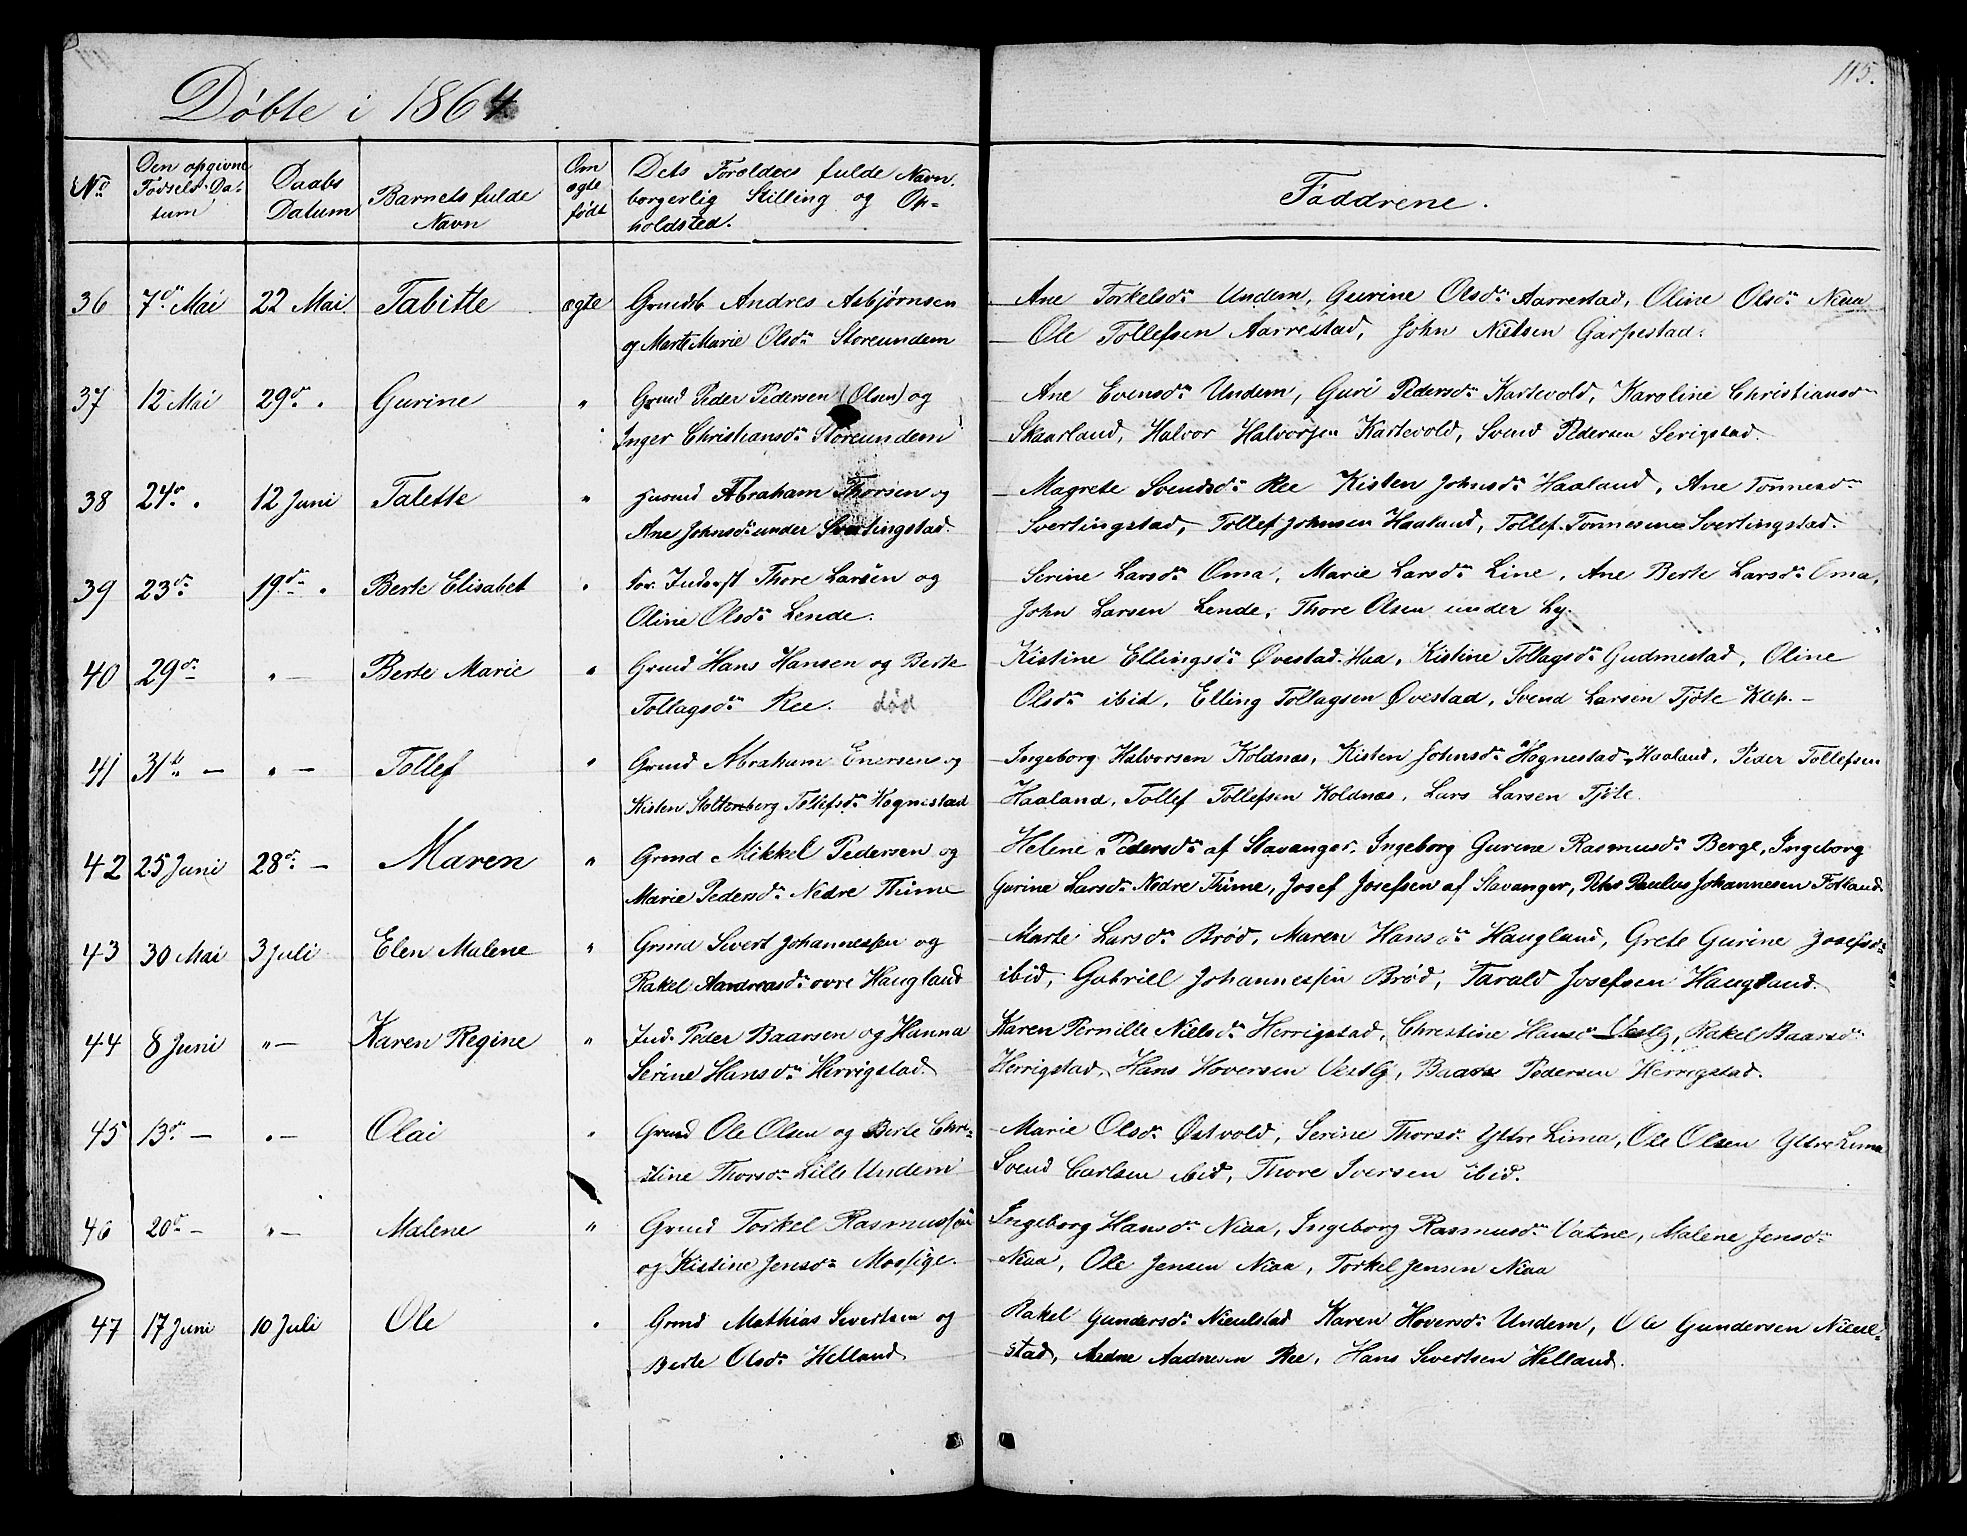 115.
Döbte i 1864
No
Den opgivne Fødsels-Da-tum
Daabs Datum
Barnets fulde Navn
Om ægte født
Dets Foreldres fulde Navn. borgerlig Stilling og Op-holdsted.
Faddrene.
36 7de Mai 22 Mai Tabitte ægte Grmdb. Andres Asbjørnsen
og Marte Marie Olsdr Storeundem
Ane Torkelsdr Undem, Gurine Olsdr Aarrestad, Oline Olsdr Niaa
Ole Tollefsen Aarrestad, John Nielsen Garpestad.
37 12 Mai 29de " Gurine " Grmd Peder Pedersen (Olsen) og
Inger Christiansdr Storeundem
Ane Evensdr Undem, Guri Pedersdr Kartevold, Karoline Christiansdr
Skaarland, Halvor Halvorsen Kartevold, Svend Pedersen Serigstad.
38 24de " 12 Juni Talette " Husmd Abraham Thorsen og
Ane Johnsdr under Svertingstad.
Magrete Svendsdr Ree Kisten Johnsdr Haaland, Ane Tonnesdr
Svertingstad, Tollef Johnsen Haaland, Tollef Tonnesen Svertingstad.
39 23de 19de " Berte Elisabet " for. Inderst Thore Larsen og
Oline Olsdr Lende.
Serine Larsdr Oma, Marie Larsdr Line, Ane Berte Larsdr Oma,
John Larsen Lende, Thore Olsen under Ly.
40 29de " — Berte Marie " Grmd Hans Hansen og Berte
Tollagsdr Ree. død
Kistine Ellingsdr Øvestad Haa, Kistine Tollagsdr Gudmestad, Oline
Olsdr ibid, Elling Tollagsen Øvestad, Svend Larsen Tjøte Klep. —
41 31te — " — Tollef " Grmd Abraham Enersen og
Kisten Stoltenberg Tollefsdr Hognestad
Ingeborg Halvorsen Koldnæs, Kisten Johnsdr Hognestad, Haaland, Peder Tollefsen
Haaland, Tollef Tollefsen Koldnæs, Lars Larsen Tjöte.
42 25 Juni 28de — Maren " Grmd Mikkel Pedersen og
Marie Pedersdr Nedre Thime
Helene Pedersdr af Stavanger, Ingeborg Gurine Rasmusdr Berge, Ingeborg
Gurine Larsdr Nedre Thime, Josef Josefsen af Stavanger, Peter Paulus Johannesen Fotland
43 30 Mai 3 Juli Elen Malene " Grmd Sivert Johannessen og
Rakel Aandreasdr ovre Haugland
Marte Larsdr Brød, Maren Hansdr Haugland, Grete Gurine Josefsdr
ibid, Gabriell Johannessen Brød, Tarald Josefsen Haugland.
44 8 Juni " — Karen Regine " Ind. Peder Baarsen og Hanna
Serine Hansdr Herrigstad.
Karen Pernille Nielsdr Herrigstad, Christine Hansd Vestly, Rakel Baarsdr
Herrigstad, Hans Hoversen Vestly, Baar Pedersen Herrigstad.
45 13de — " — Olai " Grmd Ole Olsen og Berte Chri-
stine Thorsdr Lille Undem
Marie Olsdr Østvold, Serine Thorsdr Yttre Lima, Ole Olsen Yttre Lima
Svend Carlsen ibid, Thore Iversen ibid.
46 20de — " — Malene " Grmd Torkel Rasmussen
og Kistine Jensdr Moslige.
Ingeborg Hansdr Niaa, Ingeborg Rasmusdr Vatne, Malene Jensdr
Niaa, Ole Jensen Niaa, Torkel Jensen Niaa
47 17 Juni 10 Juli Ole " Grmd Mathias Sivertsen og
Berte Olsdr Helland
Rakel Gundersdr Nieulstad Karen Hoversdr Undem, Ole Gundersen Nieul-
stad, Aadne Aadnesen Ree, Hans Sivertsen Helland.